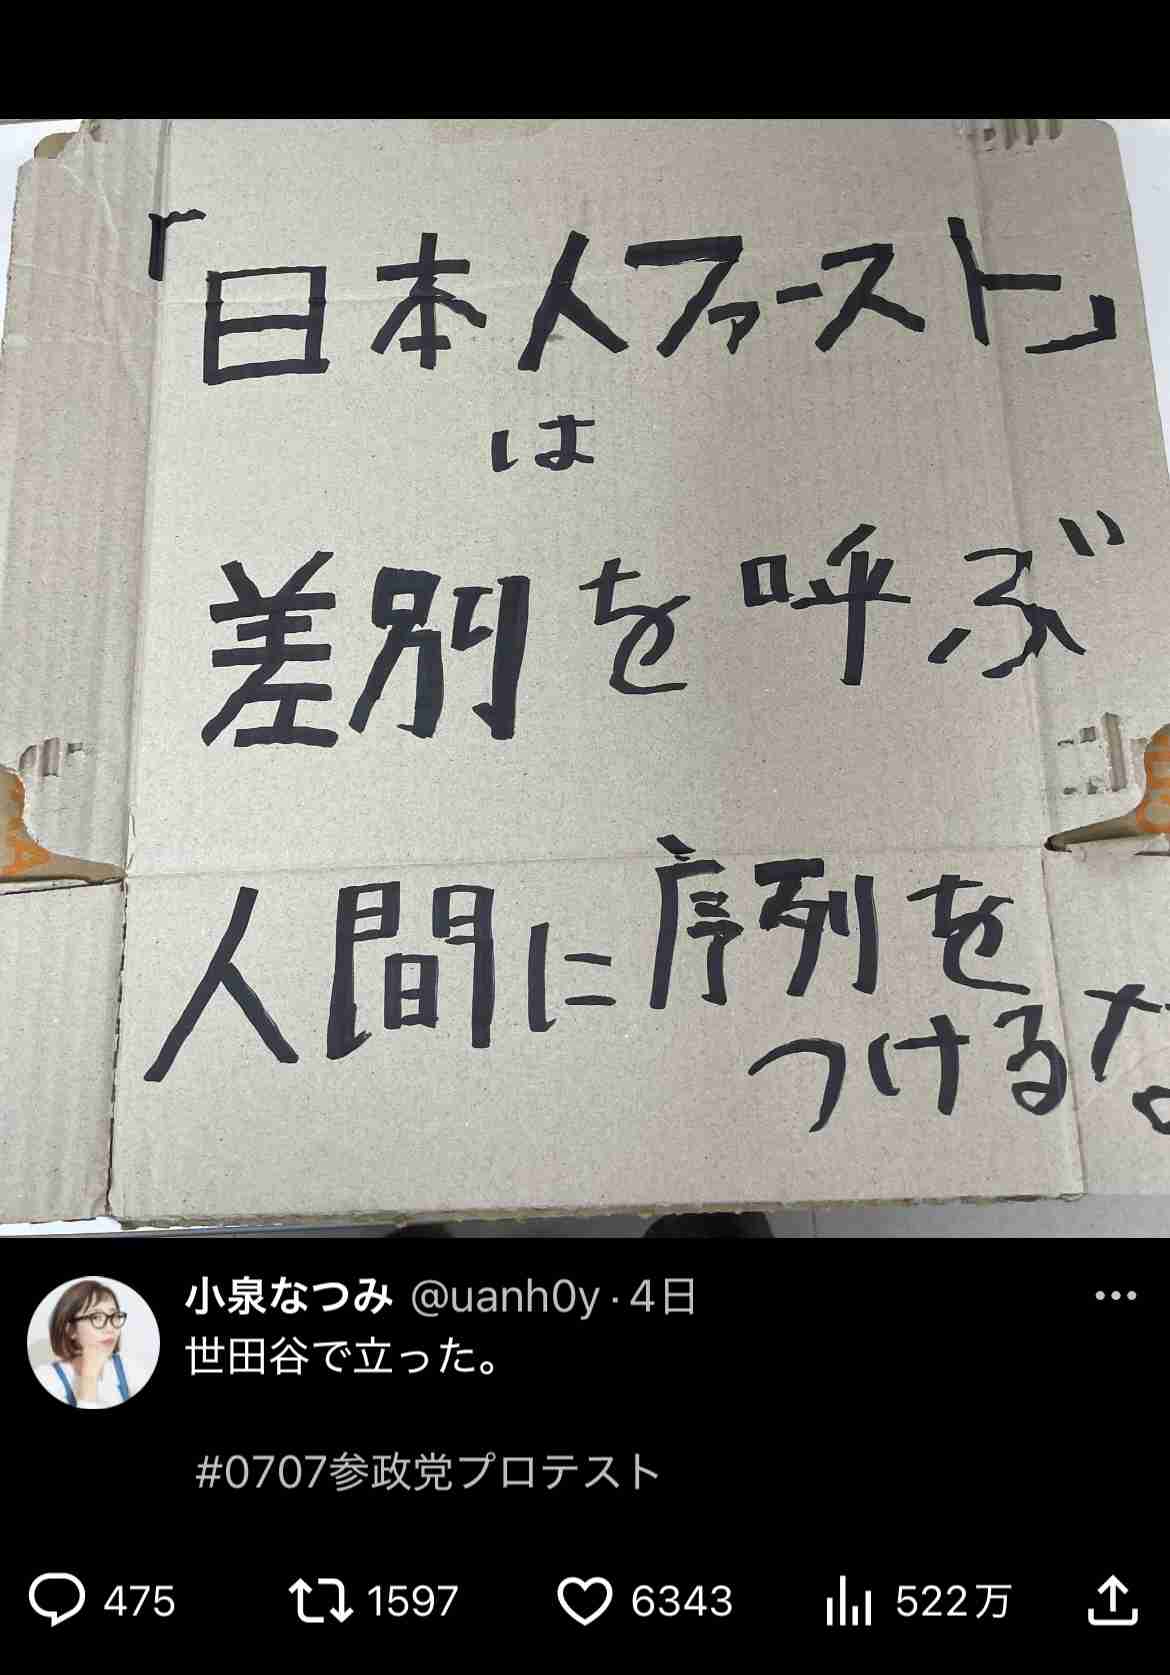 「日本人ファースト」
は
差別を呼ぶ
人間に序列を
つけるな
小泉なつみ @uanh0y · 4日
世田谷で立った。
#0707参政党プロテスト
475 1597 6343 522万